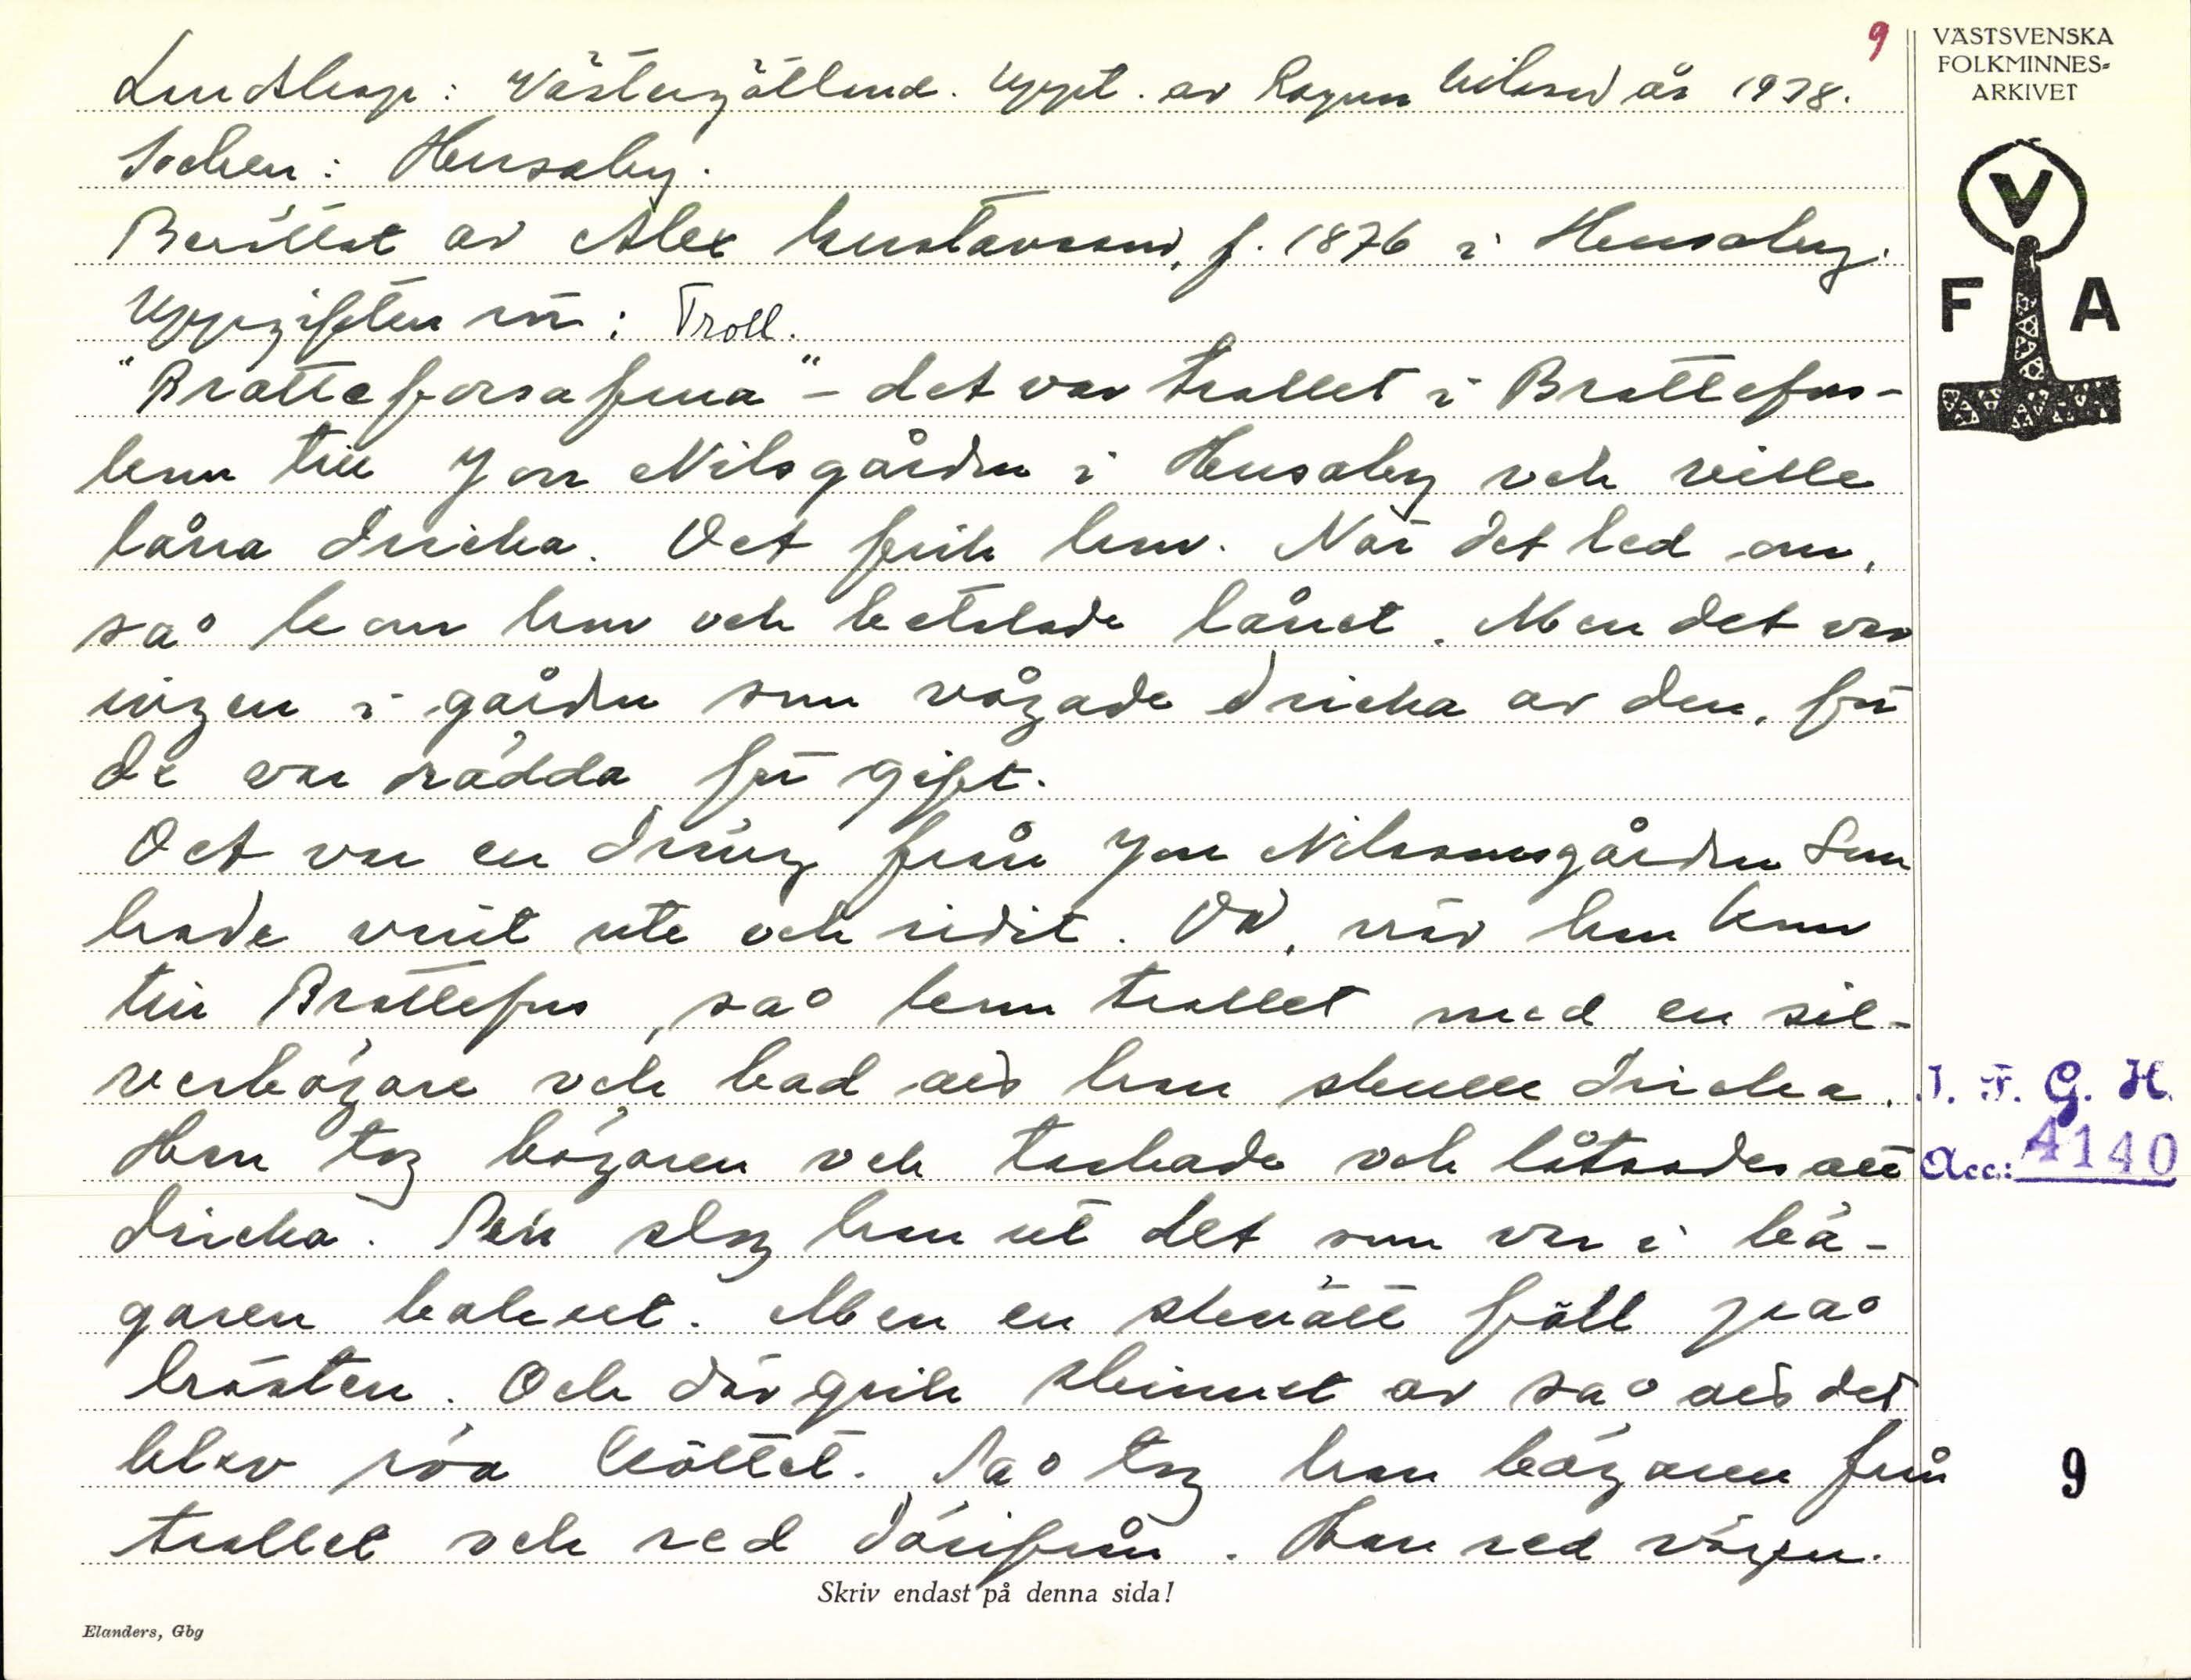 9
VÄSTSVENSKA
FOLKMINNES-
ARKIVET
Landskap: Västergötland. Uppt. av Ragnar Nilsson år 1938.
Socken: Husaby.
Berättat av Alex Gustavsson, f. 1876 i Husaby.
Uppgiften rör: Troll.
"Bratteforsafrua" - det var trollet i Brattefors -
kom till Jon Nilsgården i Husaby och ville
låna dricka. Det fick hon. När det led om,
så kom hon och betalade lånet. Men det var
ingen i gården som vågade dricka av den, för
de var rädda för gift.
Det var en dräng från Jon Nilssonsgården som
hade varit ute och ridit. Då, när han kom
till Brattefors, så kom trollet med en sil-
verbägare och bad att han skulle dricka.
Han tog bägaren och tackade och låtsades att
dricka. Sen slog han ut det som var i bä-
garen bakut. Men en skvätt föll på
hästen. Och där gick skinnet av så att det
blev röa köttet. Så tog han bägaren från
trollet och red därifrån. Han red vägen.
V
F A
I. F. G. H.
Acc.: 4140
9
Skriv endast på denna sida!
Elanders, Gbg